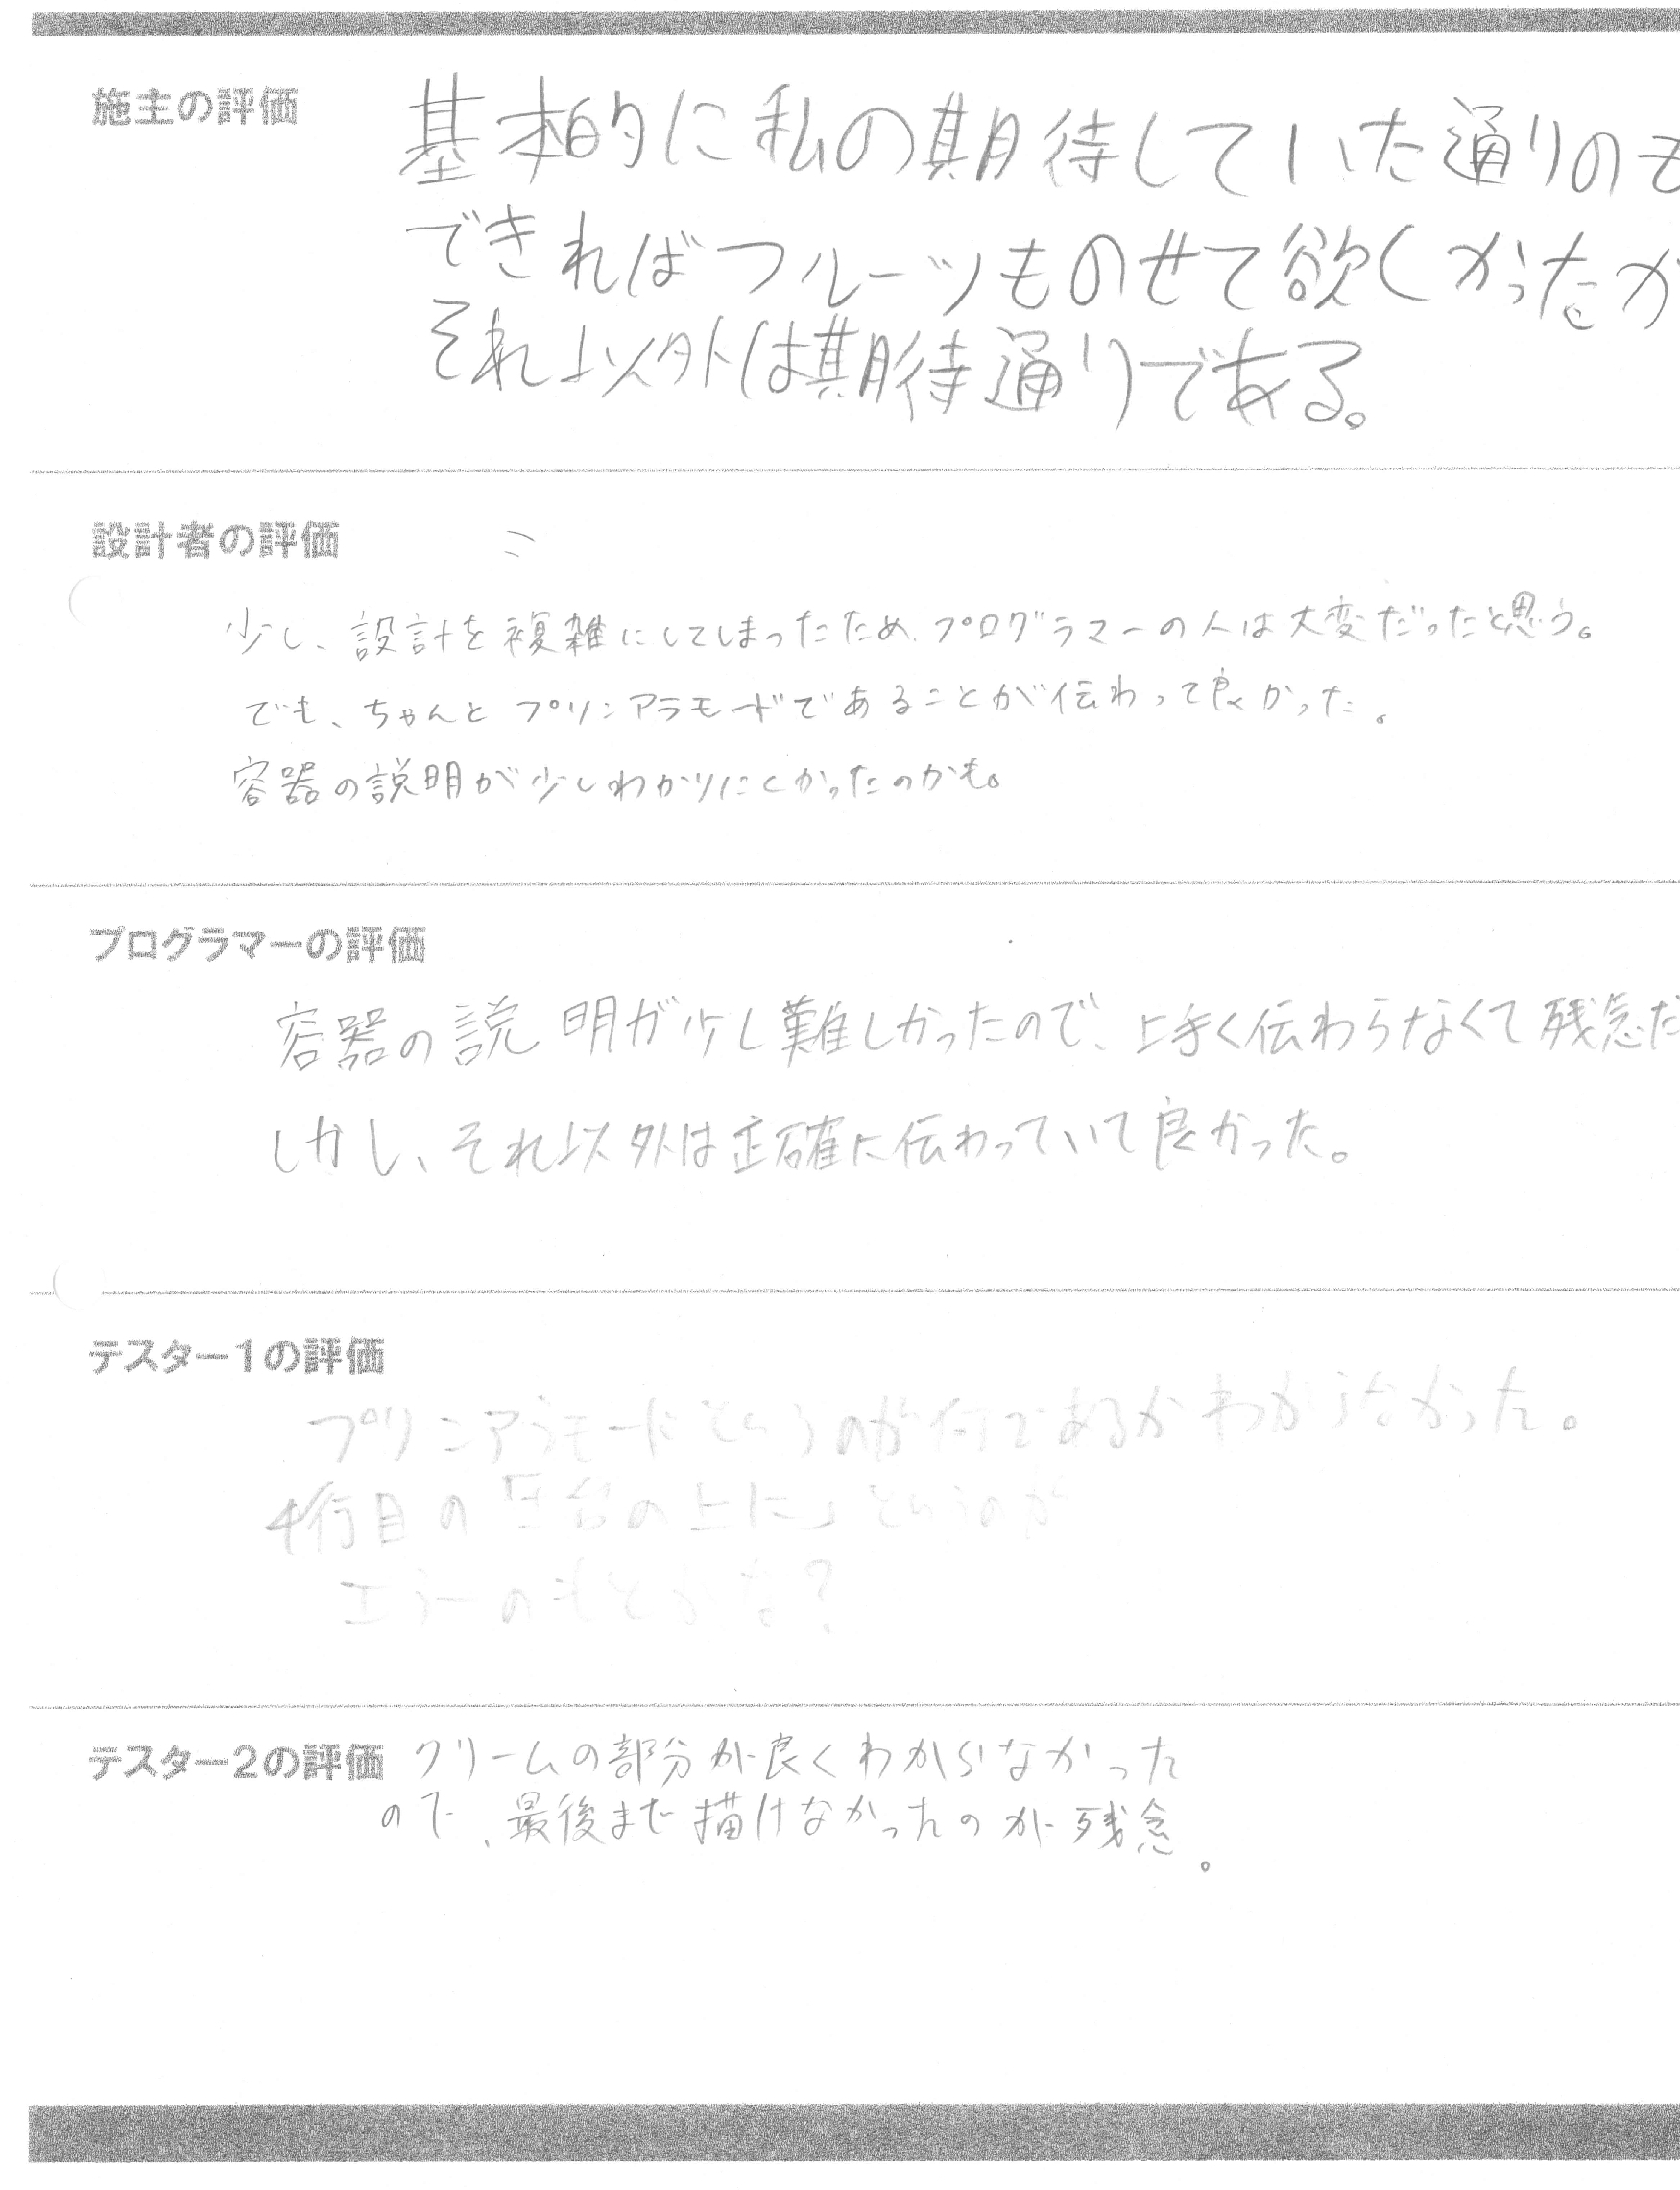 施主の評価
基本的に私の期待していた通りのも
できればフルーツものせて欲しくかったが
それ以外は期待通りである。
設計者の評価
少し、設計を複雑にしてしまったため、プログラマーの人は大変だったと思う。
でも、ちゃんとプリンアラモードであることが伝わって良かった。
容器の説明が少しわかりにくかったのかも。
プログラマーの評価
容器の説明が少し難しかったので、上手く伝わらなくて残念だ
しかし、それ以外は正確に伝わっていて良かった。
テスター1の評価
プリンアラモードというのが何であるかわからなかった。
4行目の「台の上に」というのが
エラーのもとかな?
テスター2の評価
クリームの部分が良くわからなかった
ので、最後まで描けなかったのが残念。